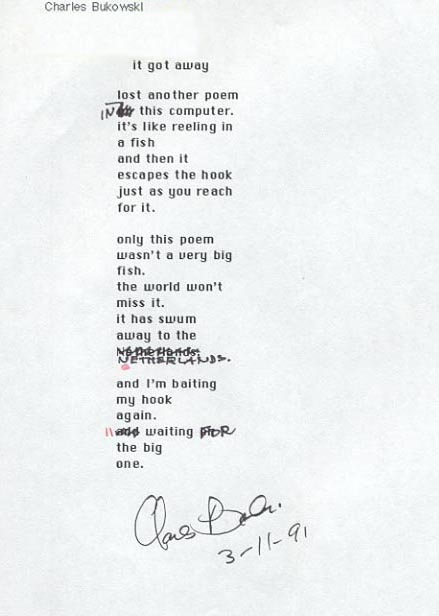 Charles Bukowski
it got away
lost another poem
IN this computer.
it's like reeling in
a fish
and then it
escapes the hook
just as you reach
for it.
only this poem
wasn't a very big
fish.
the world won't
miss it.
it has swum
away to the
NETHERLANDS.
and I'm baiting
my hook
again.
waiting FOR
the big
one.
Charles Bukowski
3-11-91